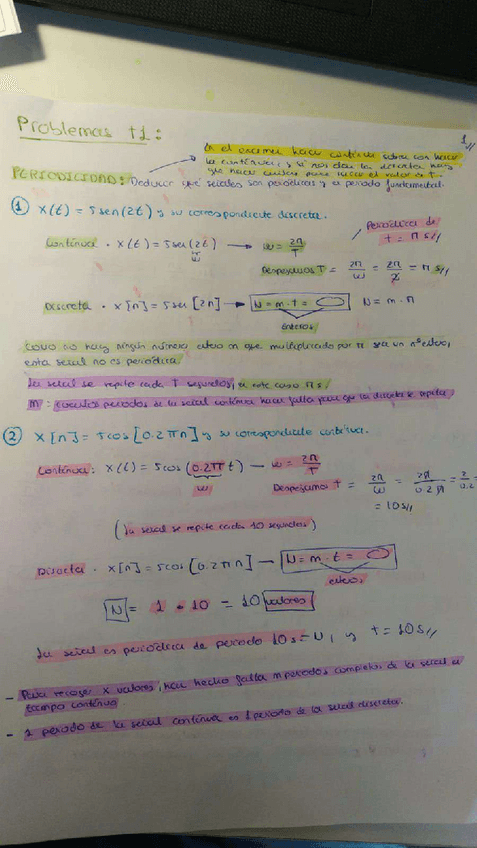 1//
Problemas t1:
En el examen hacer continua sobre con hacer
la continua, y si nos dan la discreta hay
que hacer ambas para sacar el valor de t.
PERIODICIDAD: Deducir qué señales son periódicas y el periodo fundamental.
① x(t) = 5sen(2t) y su correspondiente discreta.
Periódica de
t = π s//
Continua · x(t) = 5sen(2t) → ω = 2π/T
ω
Despejamos T = 2π/ω = 2π/2 = π s//
Discreta · x[n] = 5sen[2n] → N = m·t = N = m·π
enteros
Como no hay ningún número entero m que multiplicado por π sea un nº entero,
esta señal no es periódica
La señal se repite cada T segundos, en este caso π s.
m: cuantos periodos de la señal continua hacen falta para que la discreta se repita
② x[n] = 5cos[0.2πn] y su correspondiente continua.
Continua: x(t) = 5cos(0.2π t) — ω = 2π/T
ω
Despejamos T = 2π/ω = 2π/0.2π = 2/0.2
= 10s//
(La señal se repite cada 10 segundos)
Discreta · x[n] = 5cos[0.2πn] — N = m·t =
enteros
N = 1 · 10 = 10 valores
La señal es periódica de periodo 10s = N, y t = 10s//
- Para recoger x valores, han hecho falta m periodos completos de la señal en
tiempo continuo
- 1 periodo de la señal continua es 1 periodo de la señal discreta.